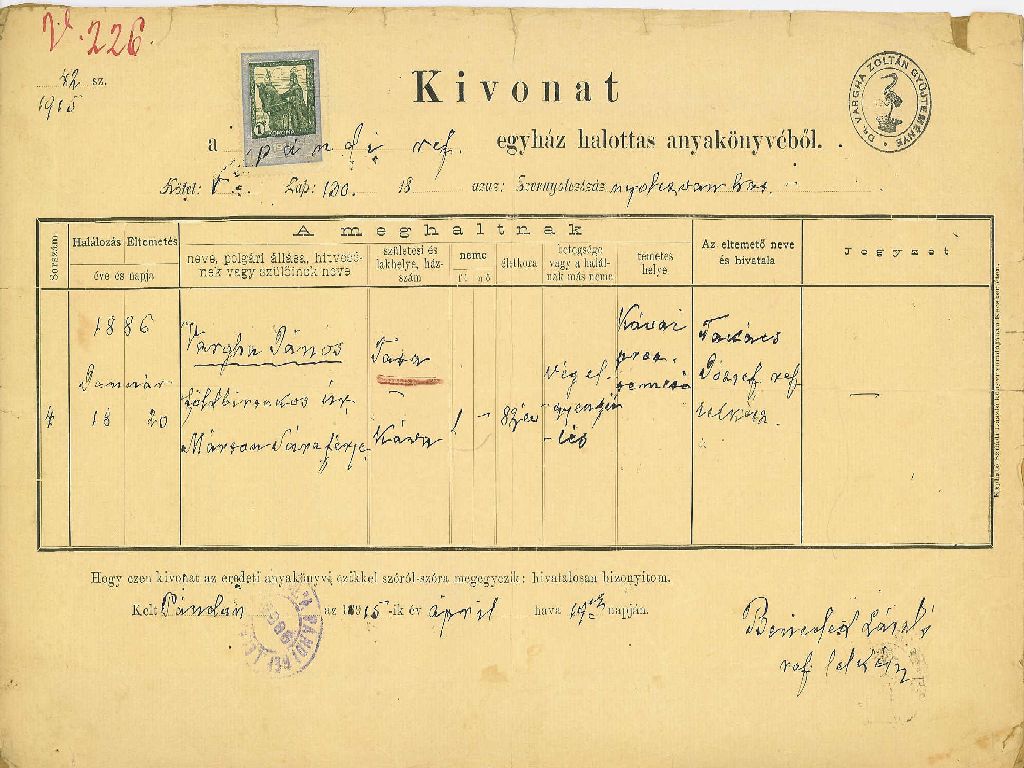 V. 226.
42 sz.
1915
Kivonat
DR. VARGHA ZOLTÁN GYŰJTEMÉNYE
1 KORONA
a pándi ref. egyház halottas anyakönyvéből.
Kötet: V. Lap: 130. 18 azaz: Ezernyolczszáz nyolczvanhat
Sorszám
Halálozás Eltemetés
éve és napja
A meghaltnak
neve, polgári állása, hitvesé-
nek vagy szülőinek neve
születési és
lakhelye, ház-
szám
neme
fi nő
életkora
betegsége
vagy a halál-
nak más neme
temetés
helye
Az eltemető neve
és hivatala
Jegyzet
4
1886
Január
18 20
Vargha János
földbirtokos úr
Márton Sára férje
Tása
Káva
1 –
82 éves
végel-
gyengü-
lés
Kávai
Takács
József ref
lelkész
—
Hogy ezen kivonat az eredeti anyakönyvi czikkel szóról-szóra megegyezik: hivatalosan bizonyitom.
Kelt Pándon az 1915-ik év április hava 19 napján.
Benedek László
ref lelkész